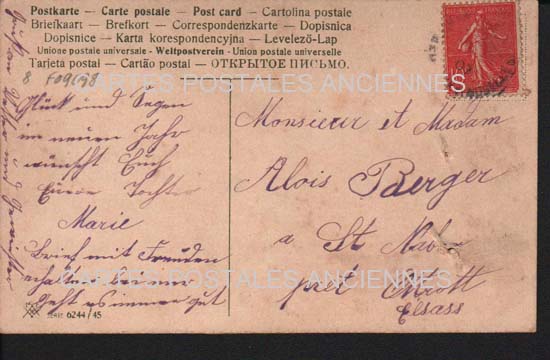 Postkarte - Carte postale - Post card - Cartolina postale
Briefkaart - Brefkort - Correspondenzkarte - Dopisnica
Dopisnice - Karta korespondencyjna - Levelező-Lap
Unione postale universale - Weltpostverein - Union postale universelle
Tarjeta postal - Cartão postal - ОТКРЫТОЕ ПИСЬМО.
8 F09698
CARTES POSTALES ANCIENNES
Glück und Segen
im neuen Jahr
wünscht Euch
Euere Tochter
Marie
Brief mit Freuden
erhalten bei mir
geht es immer gut
Monsieur et Madam
Alois Berger
a St Nabor
CARTES POSTALES ANCIENNES
près
Elsass
SERIE 6244/45